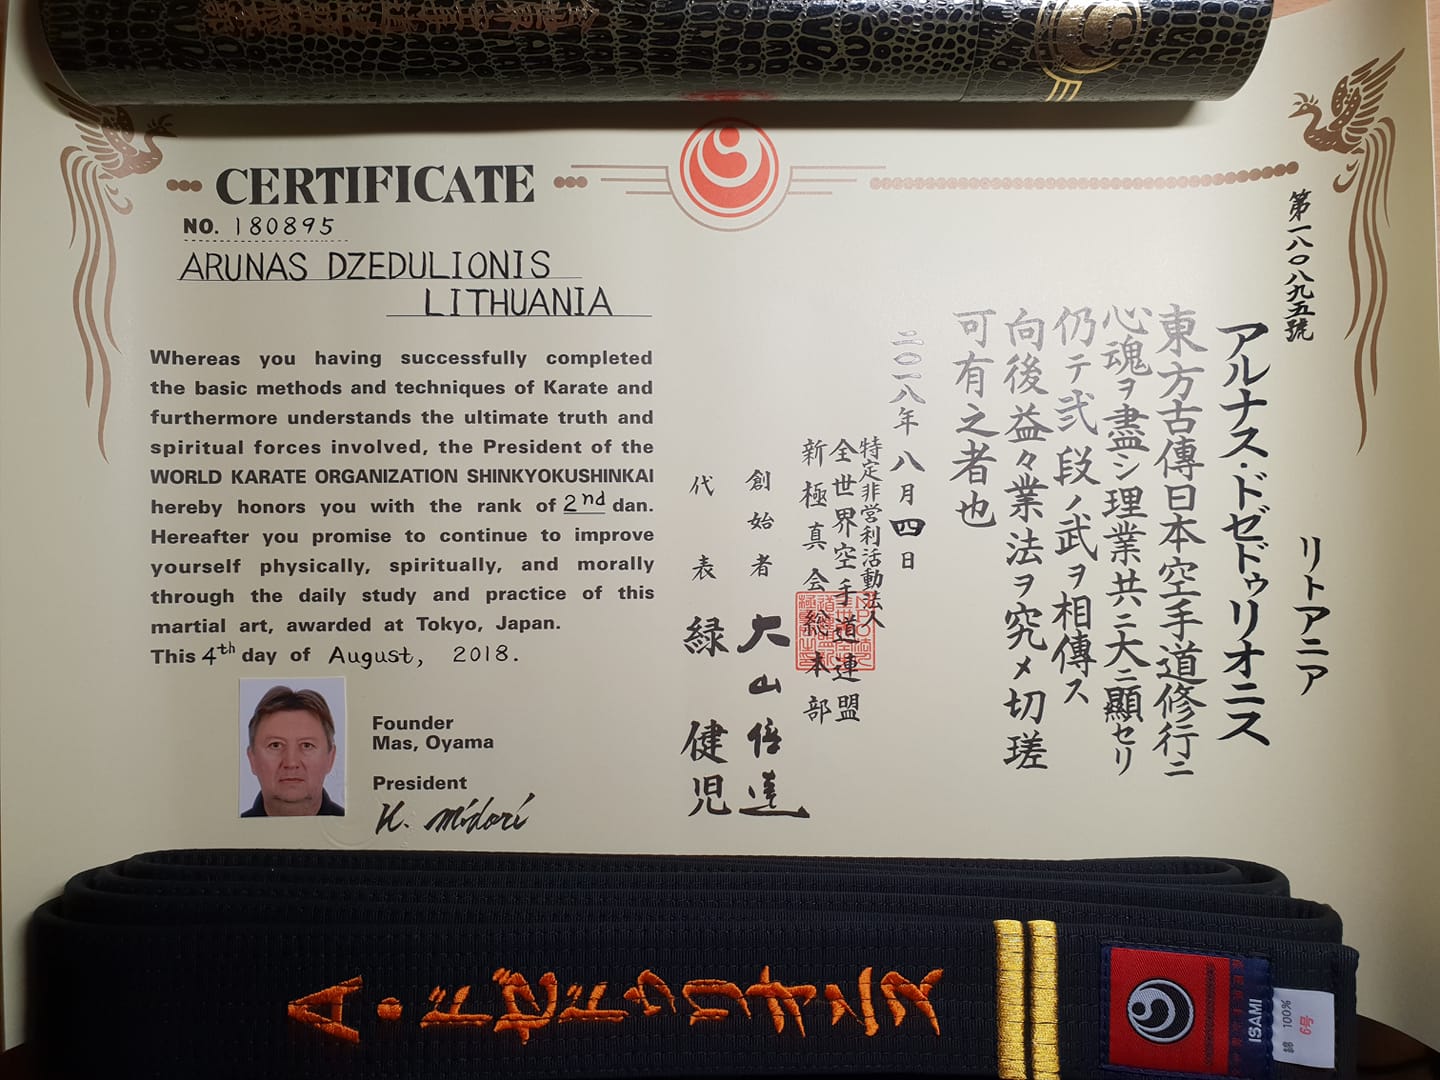 CERTIFICATE
NO. 180895
ARUNAS DZEDULIONIS
LITHUANIA
Whereas you having successfully completed
the basic methods and techniques of Karate and
furthermore understands the ultimate truth and
spiritual forces involved, the President of the
WORLD KARATE ORGANIZATION SHINKYOKUSHINKAI
hereby honors you with the rank of 2nd dan.
Hereafter you promise to continue to improve
yourself physically, spiritually, and morally
through the daily study and practice of this
martial art, awarded at Tokyo, Japan.
This 4th day of August, 2018.
Founder
Mas, Oyama
President
K. Midori
第一八〇八九五號
リトアニア
アルナス・ドゼドゥリオニス
東方古傳日本空手道修行ニ
心魂ヲ盡シ理業共ニ大ニ顯セリ
仍テ弐段ノ武ヲ相傳ス
向後益々業法ヲ究メ切瑳
可有之者也
二〇一八年八月四日
特定非営利活動法人
全世界空手道連盟
新極真会総本部
創始者 大山倍達
代表 緑健児
A・ドゼドゥリオニス
ISAMI
綿 100%
6号